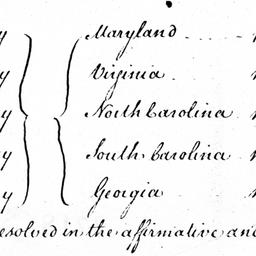 y Maryland
y Virginia
y North Carolina
y South Carolina
y Georgia
esolved in the affirmative an